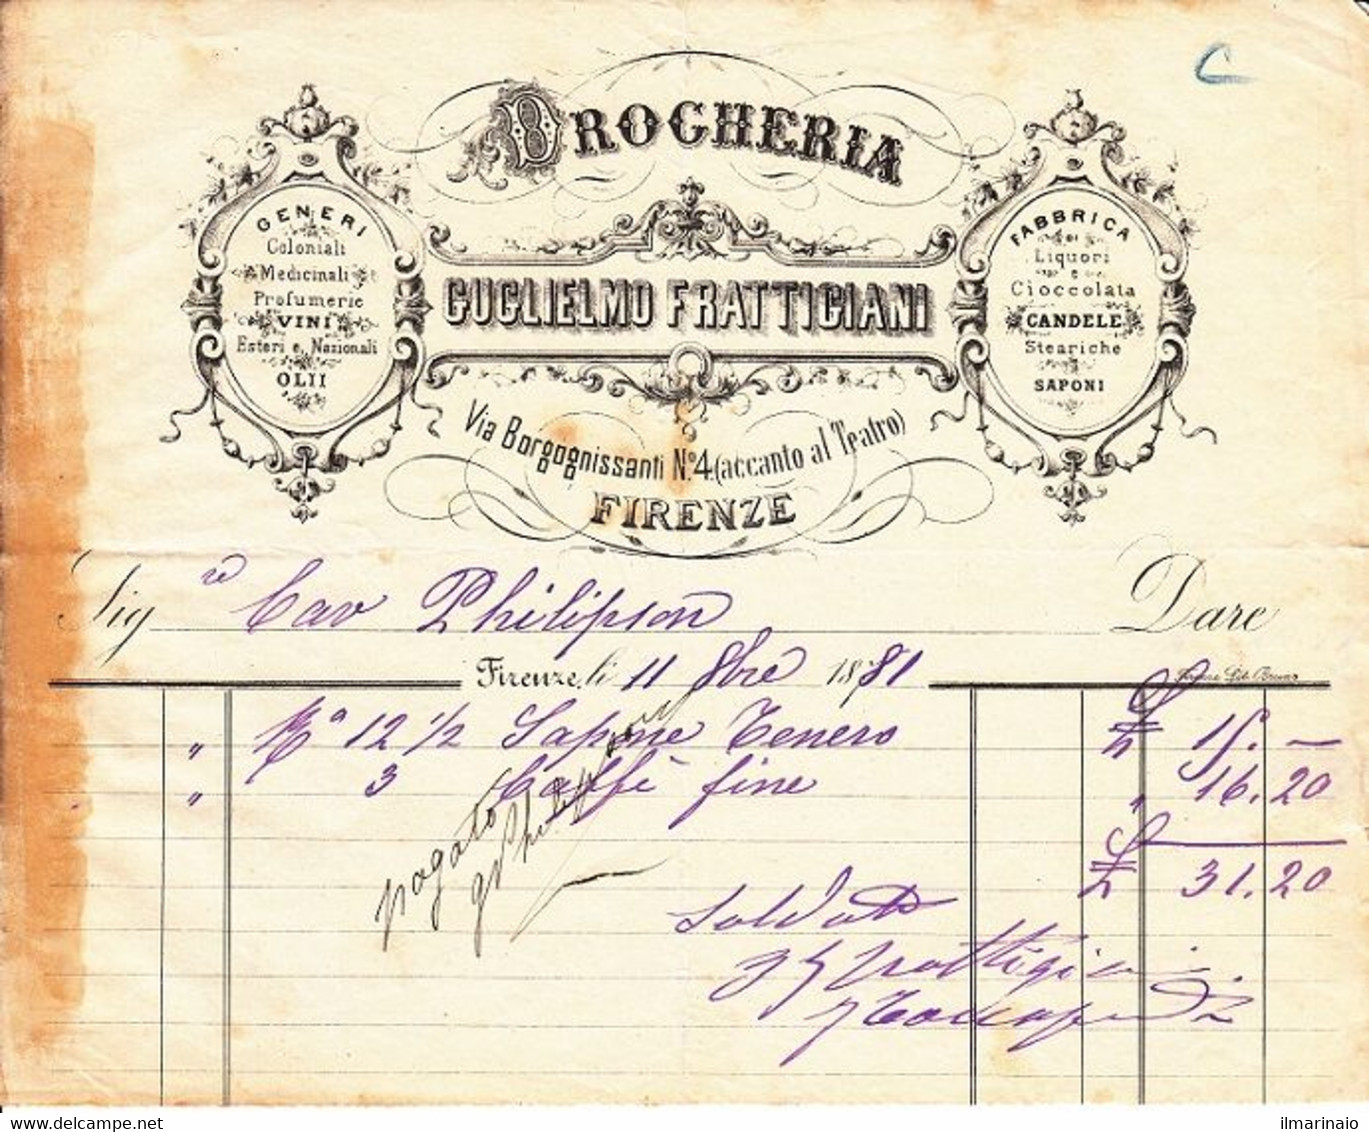 C
DROGHERIA
GENERI
Coloniali
Medicinali
Profumerie
VINI
Esteri e Nazionali
OLII
GUGLIELMO FRATTIGIANI
FABBRICA
di
Liquori
e
Cioccolata
CANDELE
Steariche
SAPONI
Via Borgognissanti No. 4 (accanto al Teatro)
FIRENZE
Sig re Cav Philipson Dare
Firenze, li 11 8bre 1881
" Ka 12 1/2 Sapone Tenero £ 15. —
" 3 Caffè fine " 16.20
£ 31.20
pagato
Philipson
Saldato
Frattigiani
delcampe.net
ilmarinaio